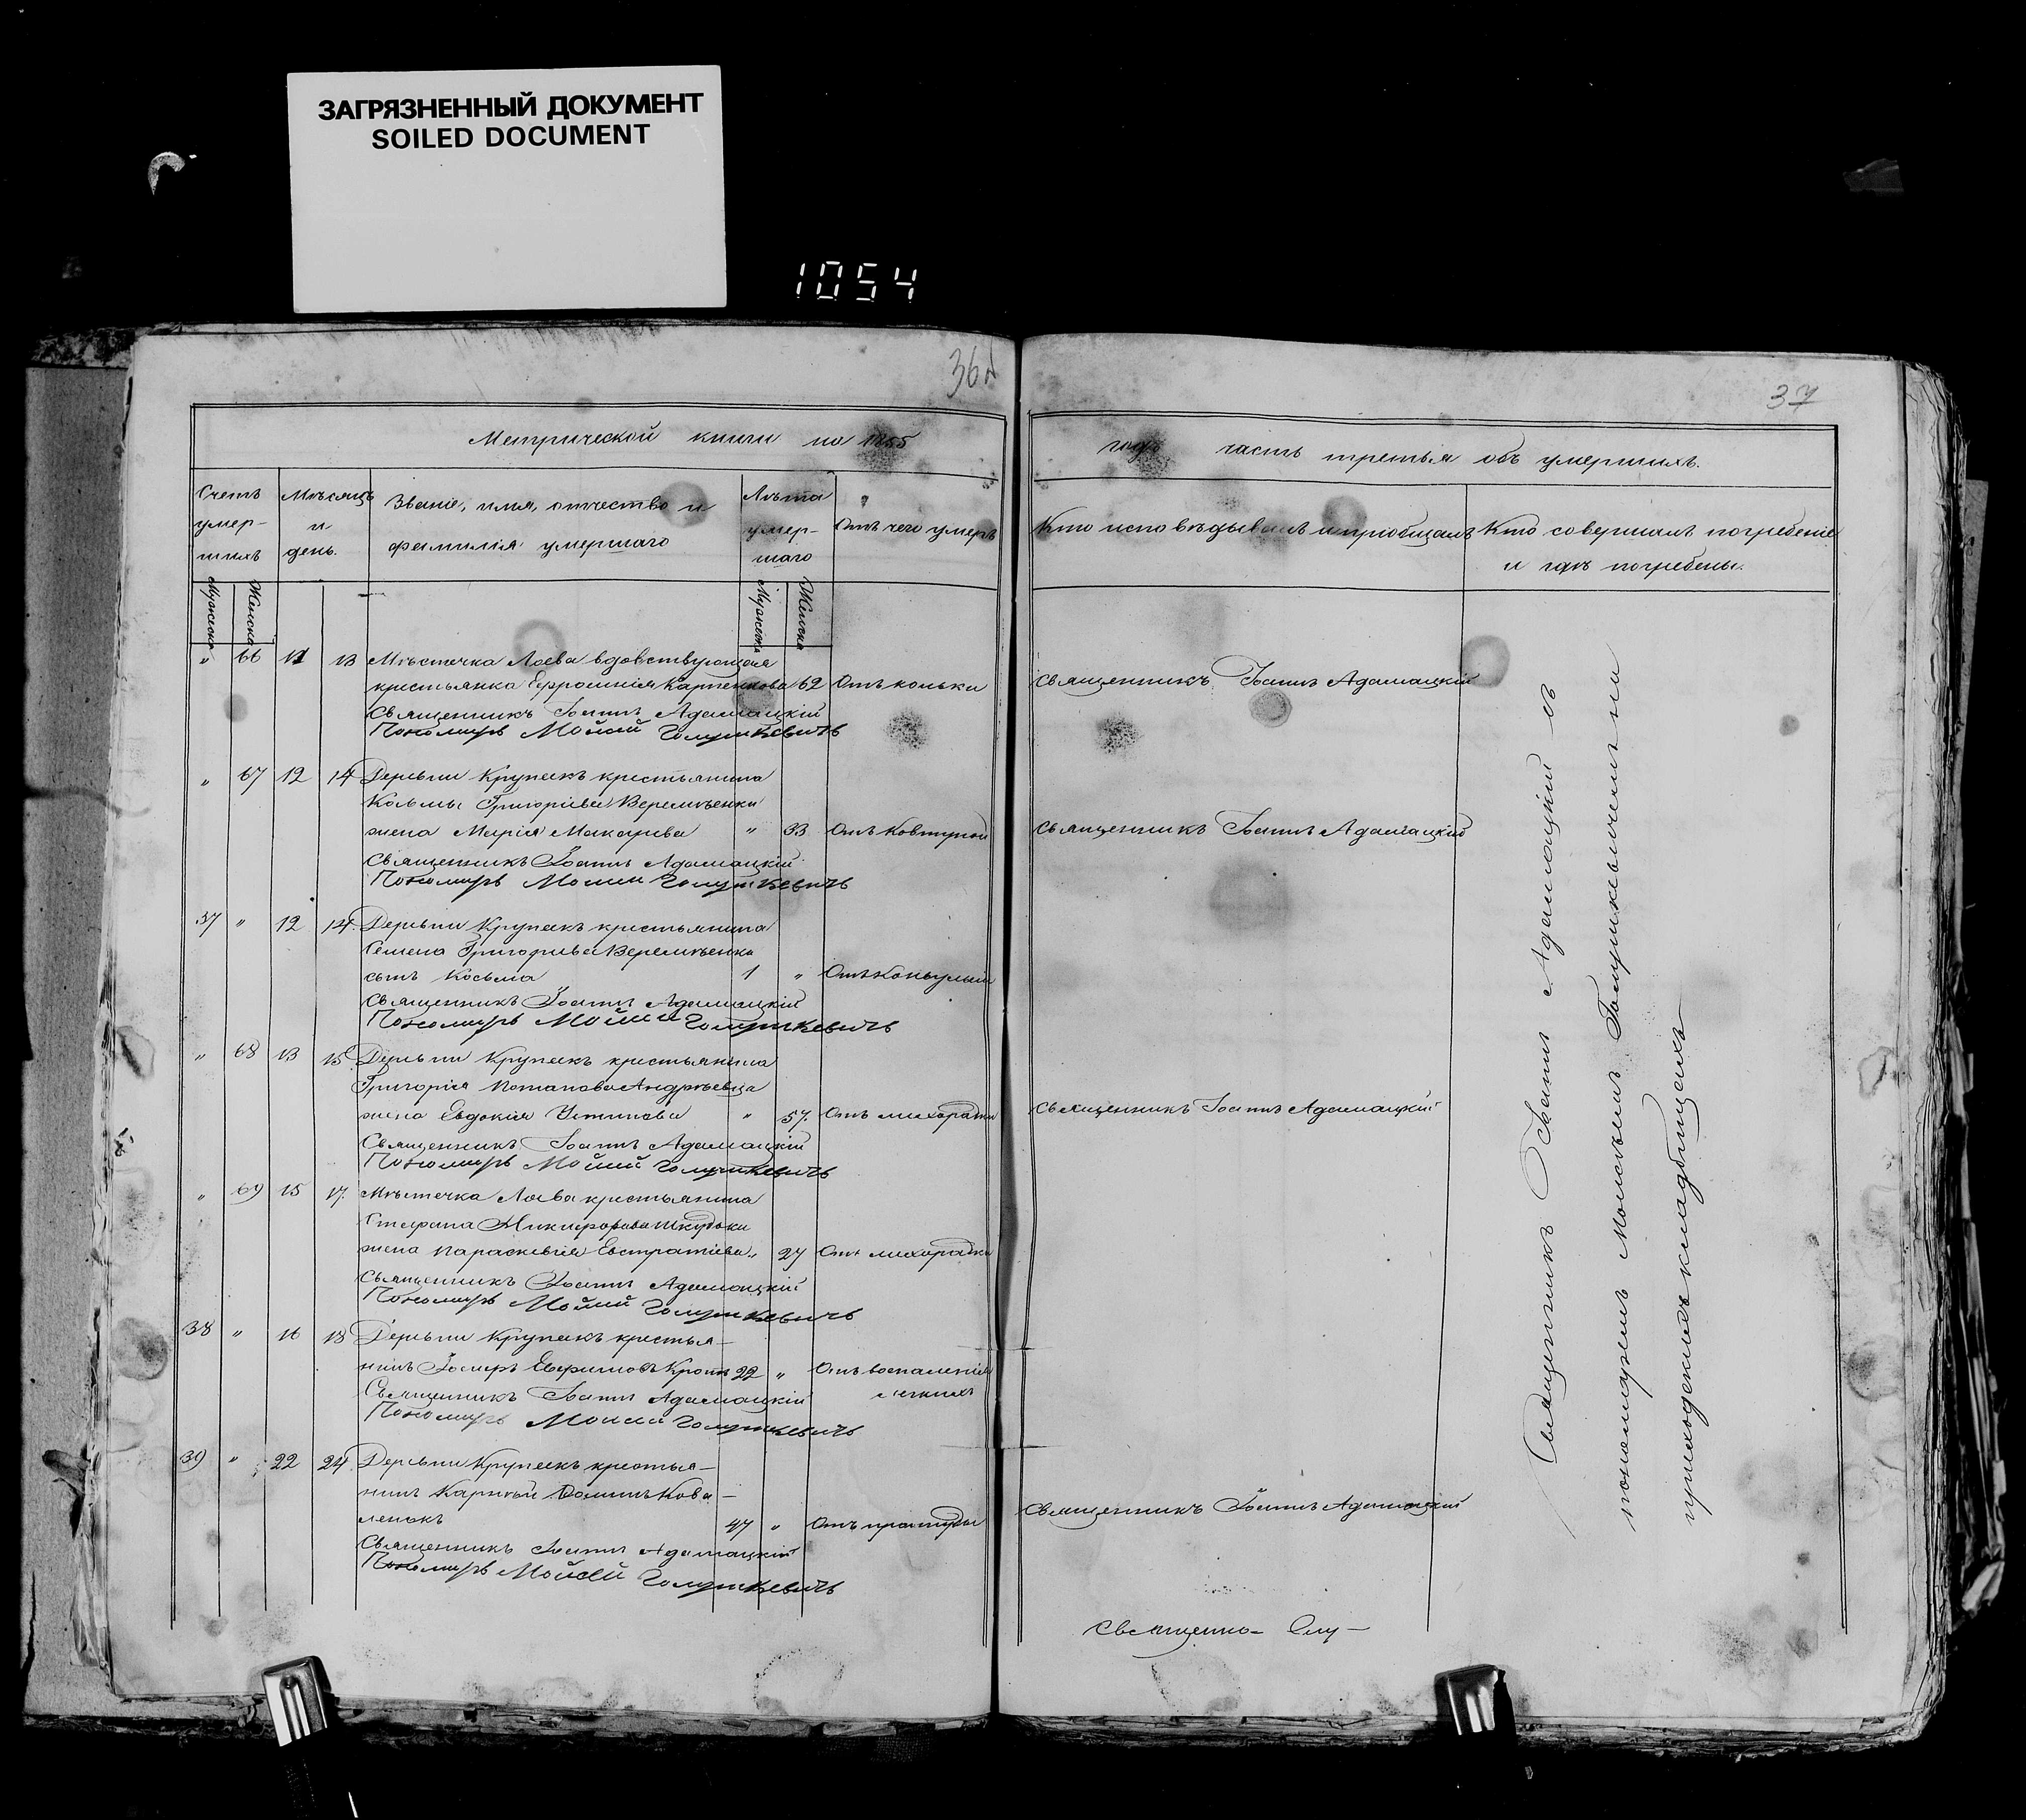 ЗАГРЯЗНЕННЫЙ ДОКУМЕНТ
SOILED DOCUMENT
1054
36
37
Метрической книги на 1855
года часть третья объ умершихъ.
Счетъ умер-шихъ
Мѣсяцъ и день.
Званіе, имя, отчество и фамилія умершаго
Лѣта умер-шаго
Отъ чего умеръ
Кто исповѣдывалъ и пріобщалъ
Кто совершалъ погребеніе и гдѣ погребены.
Мужска Женска
Мужска Женска
" 66 11 13 Мѣстечка Лоева вдовствующая
крестьянка Ефросинія Карпенкова 62 Отъ кольки Священникъ Іоаннъ Адамацкій
Священникъ Іоаннъ Адамацкій
Пономарь Моисей Голушкевичъ
" 67 12 14 Деревни Крупекъ крестьянина
Козьмы Григоріева Веремѣенки
жена Марія Макарова " 33 Отъ Священникъ Іоаннъ Адамацкій
Священникъ Іоаннъ Адамацкій
Пономарь Моисей Голушкевичъ
37 " 12 14 Деревни Крупекъ крестьянина
Семена Григорьева Веремѣенки
сынъ Косьма 1 " Отъ
Священникъ Іоаннъ Адамацкій
Пономарь Моисей Голушкевичъ
" 68 13 15 Деревни Крупекъ крестьянина
Григорія Потапова Андрѣевца
жена Евдокія Устинова " 57. Отъ лихорадки Священникъ Іоаннъ Адамацкій
Священникъ Іоаннъ Адамацкій
Пономарь Моисей Голушкевичъ
" 69 15 17. Мѣстечка Лоева крестьянина
Стефана Никифорова
жена Параскевія Евстратіева " 27 Отъ лихорадки
Священникъ Іоаннъ Адамацкій
Пономарь Моисей Голушкевичъ
38 " 16 18 Деревни Крупекъ крестья-
нинъ Евфимовъ 22 " Отъ воспаленія
легкихъ
Священникъ Іоаннъ Адамацкій
Пономарь Моисей Голушкевичъ
39 " 22 24 Деревни Крупекъ крестья-
нинъ Карпъ Кова-
ленокъ 47 " Отъ простуды Священникъ Іоаннъ Адамацкій
Священникъ Іоаннъ Адамацкій
Пономарь Моисей Голушкевичъ
Священникъ Іоаннъ Адамацкій съ
пономаремъ Моисеемъ Голушкевичемъ на
приходскихъ кладбищахъ
Священно- Слу-